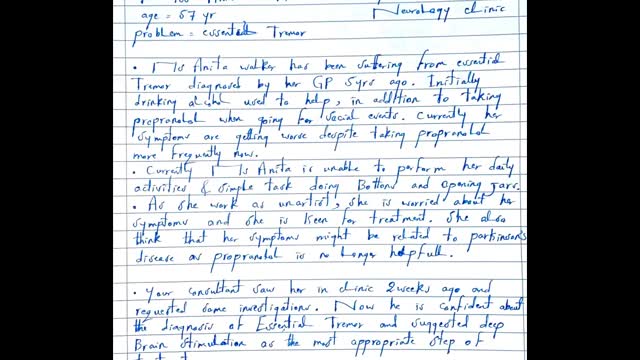 age = 57 yr Neurology clinic
problem = essential Tremor
• Ms Anita walker has been suffering from essential
Tremor diagnosed by her GP 5yrs ago. Initially
drinking alcohol used to help, in addition to taking
propranolol when going for social events. Currently her
symptoms are getting worse despite taking propranolol
more frequently now.
• Currently Ms Anita is unable to perform her daily
activities & simple task doing Bottons and opening jars.
• As she work as unartist, she is worried about her
symptoms and she is keen for treatment. She also
think that her symptoms might be related to parkinson's
disease as propranolol is no longer helpfull.
• Your consultant saw her in clinic 2 weeks ago and
requested some investigations. Now he is confident about
the diagnosis of Essential Tremor and suggested deep
Brain stimulation as the most appropriate step of